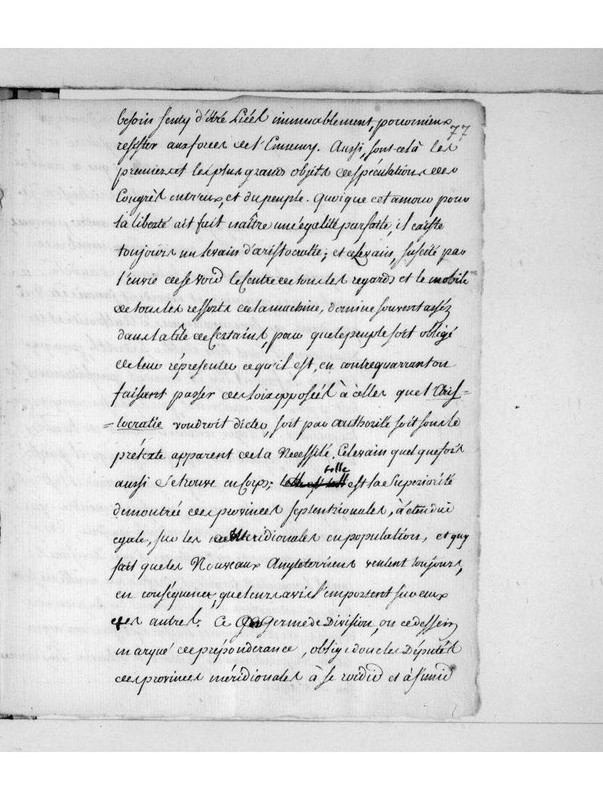 77
besoin senty d'être Liés immuablement, pour mieux
resister aux forces de l'Ennemy. Aussi, sont-ce là les
premiers et les plus grands objets de spéculations des
Congrès entr'eux, et du peuple. Quoique cet amour pour
la liberté ait fait naître une égalité parfaite, il existe
toujours un levain d'aristocratie; et ce Levain, suscité par
l'envie de se voir le Centre de tous les regards et le mobile
de tous les ressorts de la machine, domine souvent assés
dans la tête de Certains, pour que le peuple soit obligé
de leur réprésenter ce qu'il est, en contrequarrant ou
faisant passer des loix opposées à celles que l'Aris-
-tocratie voudroit dicter, soit par authorité soit sous le
prétexte apparent de la Nécessité. Ce levain quelquefois
aussi se trouve en Corps; telle est la Supériorité
démontrée des provinces septentrionales, à étendüe
egale, sur les méridionales en population, et qui
fait que les Nouveaux Angleterriens veulent toujours,
en conséquence, que leurs avis l'emportent sur ceux
des autres. Ce Germe de Division, ou ce dessein
marqué de prépondérance, oblige donc les Députés
des provinces méridionales à se roidir et à s'unir